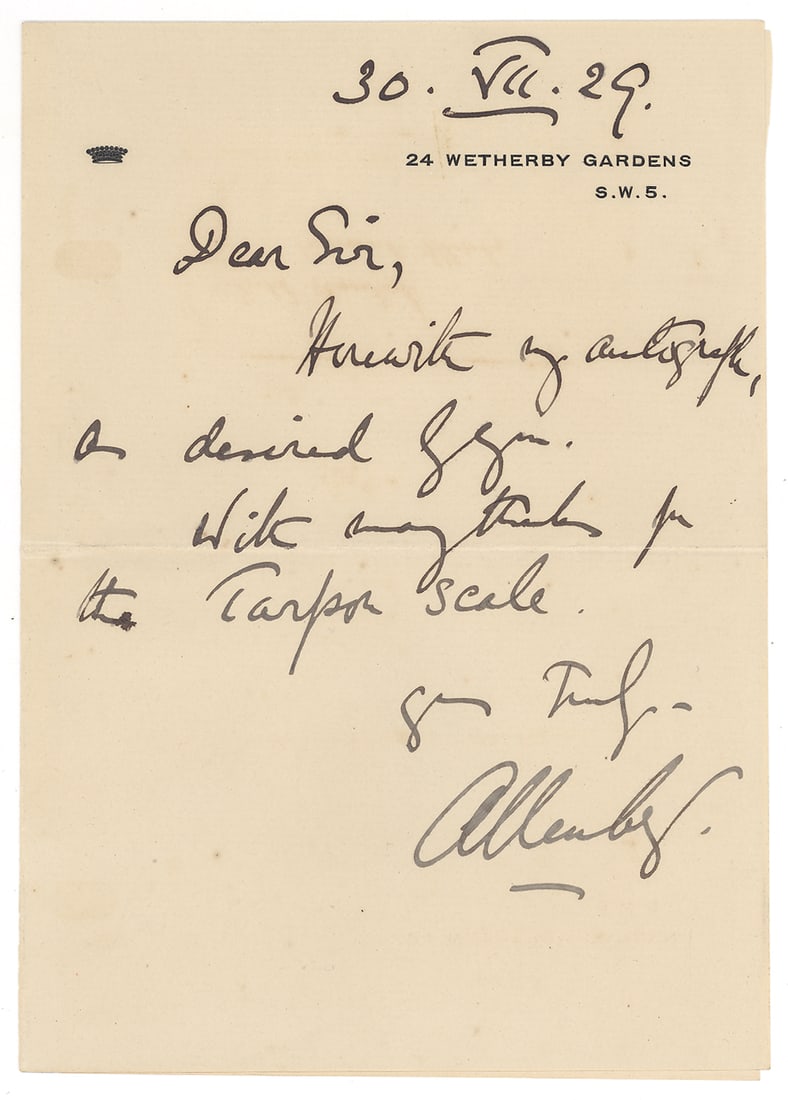 30. VII. 29.
24 WETHERBY GARDENS
S.W.5.
Dear Sir,
Herewith my autograph,
as desired by you.
With many thanks for
the Tarpon scale.
Yours Truly –
Allenby.